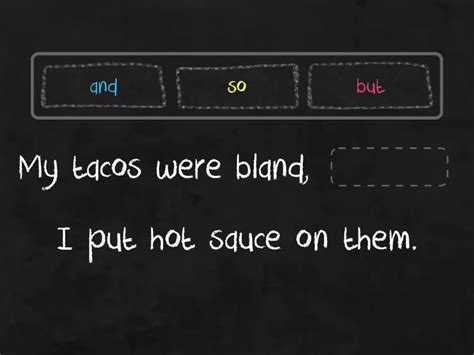 and so but
My tacos were bland,
I put hot sauce on them.